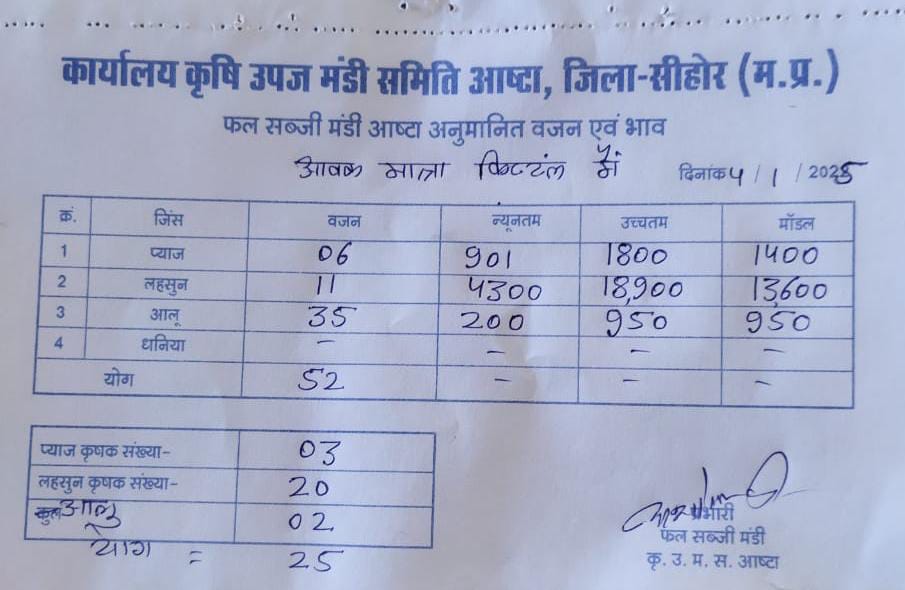 कार्यालय कृषि उपज मंडी समिति आष्टा, जिला-सीहोर (म.प्र.)
फल सब्जी मंडी आष्टा अनुमानित वजन एवं भाव
आवक मात्रा क्विटंल में दिनांक 4 / 1 / 2025
क्रं. जिंस वजन न्यूनतम उच्चतम मॉडल
1 प्याज 06 901 1800 1400
2 लहसुन 11 4300 18,900 13,600
3 आलू 35 200 950 950
4 धनिया - - - -
योग 52 - - -
प्याज कृषक संख्या- 03
लहसुन कृषक संख्या- 20
कुल आलु 02
योग = 25
प्रभारी
फल सब्जी मंडी
कृ. उ. म. स. आष्टा